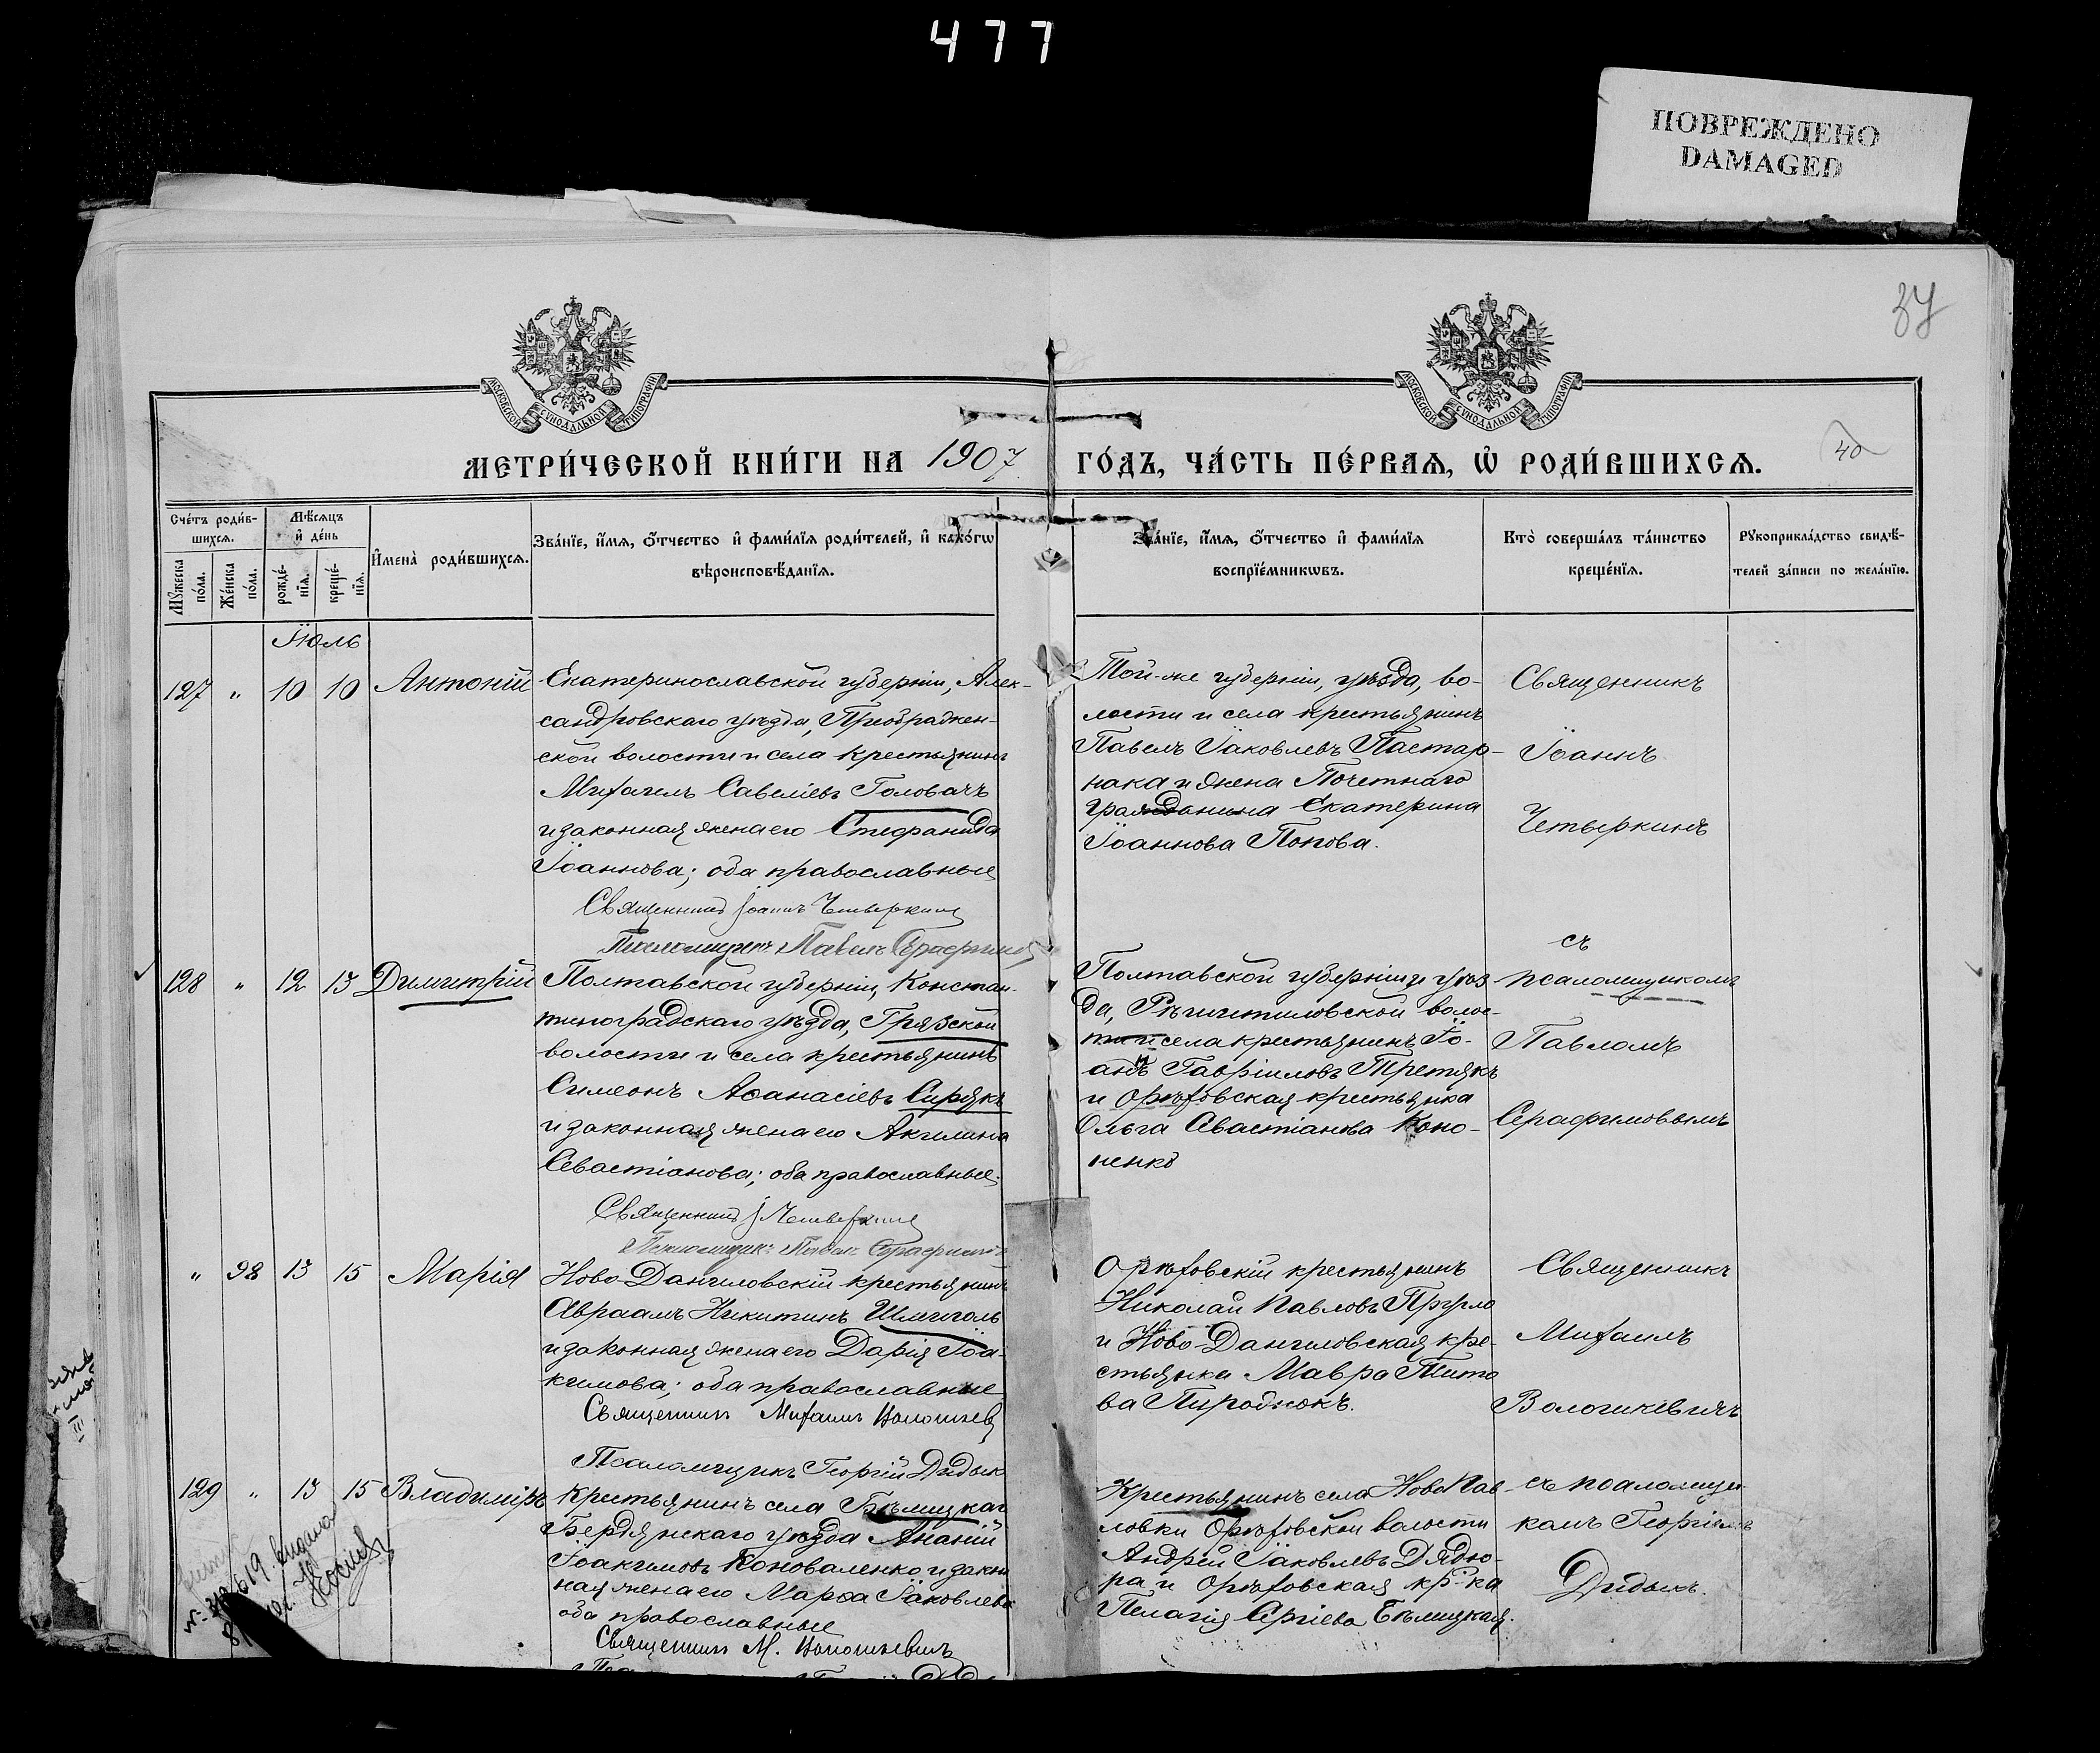 477
ПОВРЕЖДЕНО
DAMAGED
37
МОСКОВСКОЙ СѴНОДАЛЬНОЙ ТИПОГРАФІИ
МОСКОВСКОЙ СѴНОДАЛЬНОЙ ТИПОГРАФІИ
МЕТРИ́ЧЕСКОЙ КНИ́ГИ НА 1907 ГО́ДЪ, ЧА́СТЬ ПЕ́РВАѦ, Ѡ҆ РОДИ́ВШИХСѦ.
40
Сче́тъ роди́в-
шихсѧ.
Мѣ́сѧцъ
и҆ де́нь
Мꙋ́жеска
по́ла.
Же́нска
по́ла.
рожде́-
нїѧ.
креще́-
нїѧ.
И҆мена̀ роди́вшихсѧ.
Зва́нїе, и҆́мѧ, ѻ҆́тчество и҆ фами́лїѧ роди́телей, и҆ како́гѡ
вѣроисповѣ́данїѧ.
Зва́нїе, и҆́мѧ, ѻ҆́тчество и҆ фами́лїѧ
воспрїе́мникѡвъ.
Кто̀ соверша́лъ та́инство
креще́нїѧ.
Рꙋкоприкла́дство свидѣ́-
телей за́писи по жела́нїю.
Іюль
127 " 10 10 Антоній
Екатеринославской губерніи, Алек-
сандровскаго уѣзда, Преображен-
ской волости и села крестьянинъ
Михаилъ Савеліевъ Головачъ
и законная жена его Стефанида
Іоаннова; оба православные
Священникъ Іоаннъ Четыркинъ
Псаломщикъ Павелъ Серафимовъ
Той-же губерніи, уѣзда, во-
лости и села крестьянинъ
Павелъ Іаковлевъ Пастар-
нака и жена Почетнаго
гражданина Екатерина
Іоаннова Попова.
Священникъ
Іоаннъ
Четыркинъ
съ
128 " 12 13 Димитрій
Полтавской губерніи, Констан-
тиноградскаго уѣзда, Грязской
волости и села крестьянинъ
Симеонъ Аѳанасіевъ Сирякъ
и законная жена его Акилина
Севастіанова; оба православные.
Священникъ І Четыркинъ
Псаломщикъ Павелъ Серафимовъ
Полтавской губерніи и уѣз
да, Рѣшетиловской волос-
ти и села крестьянинъ Іо-
аннъ Гавріиловъ Третякъ
и Орѣховская крестьянка
Ольга Севастіанова Коно-
ненко
псаломщикомъ
Павломъ
Серафимовымъ
" 98 13 15 Марія
Ново-Даниловскій крестьянинъ
Авраамъ Никитинъ Шмиголь
и законная жена его Дарія Іоа-
кимова; оба православные
Священникъ Михаилъ Волошкевичъ
Псаломщикъ Георгій Дидык
Орѣховскій крестьянинъ
Николай Павловъ Пругло
и Ново-Даниловская кре-
стьянка Мавра Тито
ва Пироднокъ.
Священникъ
Михаилъ
Волошкевичъ
129 " 13 15 Владиміръ
Крестьянинъ села Бѣлицкаго
Бердянскаго уѣзда Ананій
Іоакимовъ Коноваленко и закон
ная жена его Марѳа Іаковлева
оба православные
Священникъ М. Волошкевичъ
Крестьянинъ села НовоПав-
ловки Орѣховской волости
Андрей Іаковлевъ Дядю-
ра и Орѣховская кр-ка
Пелагія Сергіева Бѣлицкая.
съ псаломщи-
комъ Георгіемъ
Дидыкъ.